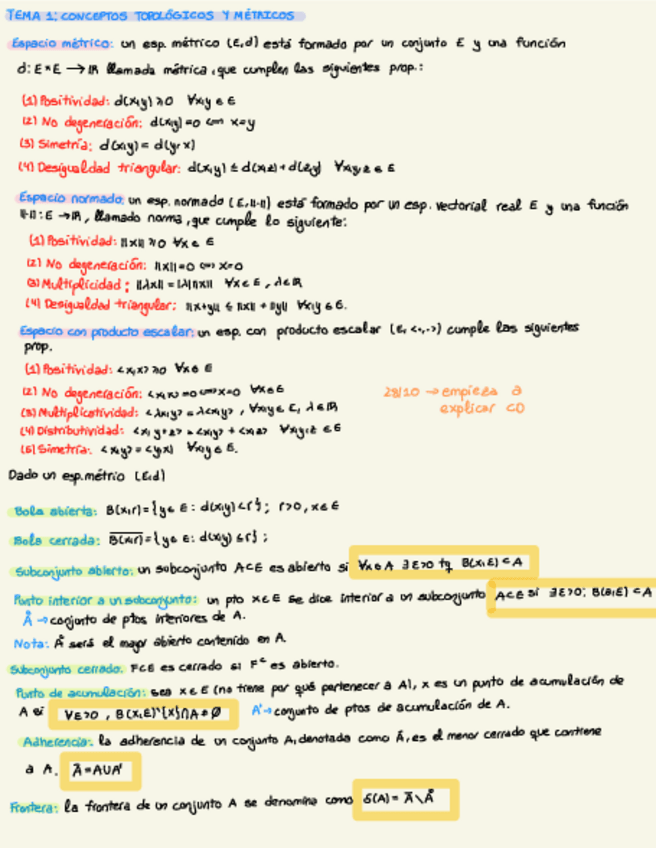 TEMA 1: CONCEPTOS TOPOLÓGICOS Y MÉTRICOS
Espacio métrico: un esp. métrico (E,d) está formado por un conjunto E y una función
d: E×E → ℝ llamada métrica, que cumplen las siguientes prop.:
(1) Positividad: d(x,y) ≥ 0 ∀x,y ∈ E
(2) No degeneración: d(x,y)=0 ⟺ x=y
(3) Simetría: d(x,y) = d(y,x)
(4) Desigualdad triangular: d(x,y) ≤ d(x,z) + d(z,y) ∀x,y,z ∈ E
Espacio normado: un esp. normado (E,‖·‖) está formado por un esp. vectorial real E y una función
‖·‖: E → ℝ, llamado norma, que cumple lo siguiente:
(1) Positividad: ‖x‖ ≥ 0 ∀x ∈ E
(2) No degeneración: ‖x‖=0 ⟺ x=0
(3) Multiplicidad: ‖λx‖ = |λ|‖x‖ ∀x ∈ E, λ ∈ ℝ
(4) Desigualdad triangular: ‖x+y‖ ≤ ‖x‖ + ‖y‖ ∀x,y ∈ E.
Espacio con producto escalar: un esp. con producto escalar (E, <·,·>) cumple las siguientes
prop.
(1) Positividad: <x,x> ≥ 0 ∀x ∈ E
(2) No degeneración: <x,x> = 0 ⟺ x=0 ∀x ∈ E
28/10 → empieza a
explicar CD
(3) Multiplicatividad: <λx,y> = λ<x,y>, ∀x,y ∈ E, λ ∈ ℝ
(4) Distributividad: <x,y+z> = <x,y> + <x,z> ∀x,y,z ∈ E
(5) Simetría: <x,y> = <y,x> ∀x,y ∈ E.
Dado un esp. métrio (E,d)
Bola abierta: B(x,r) = {y ∈ E : d(x,y) < r}; r>0, x ∈ E
Bola cerrada: B̅(̅x̅,̅r̅)̅ = {y ∈ E : d(x,y) ≤ r};
Subconjunto abierto: un subconjunto A⊂E es abierto si ∀x ∈ A ∃ε>0 tq B(x,ε) ⊂ A
Punto interior a un subconjunto: un pto x ∈ E se dice interior a un subconjunto A⊂E si ∃ε>0; B(a,ε) ⊂ A
Å → conjunto de ptos interiores de A.
Nota: Å será el mayor abierto contenido en A.
Subconjunto cerrado: F⊂E es cerrado si Fᶜ es abierto.
Punto de acumulación: sea x ∈ E (no tiene por qué pertenecer a A), x es un punto de acumulación de
A si ∀ε>0, B(x,ε)\{x}∩A ≠ ∅ A' → conjunto de ptos de acumulación de A.
Adherencia: la adherencia de un conjunto A, denotada como Ā, es el menor cerrado que contiene
a A. Ā = A∪A'
Frontera: la frontera de un conjunto A se denomina como δ(A) = Ā \ Å